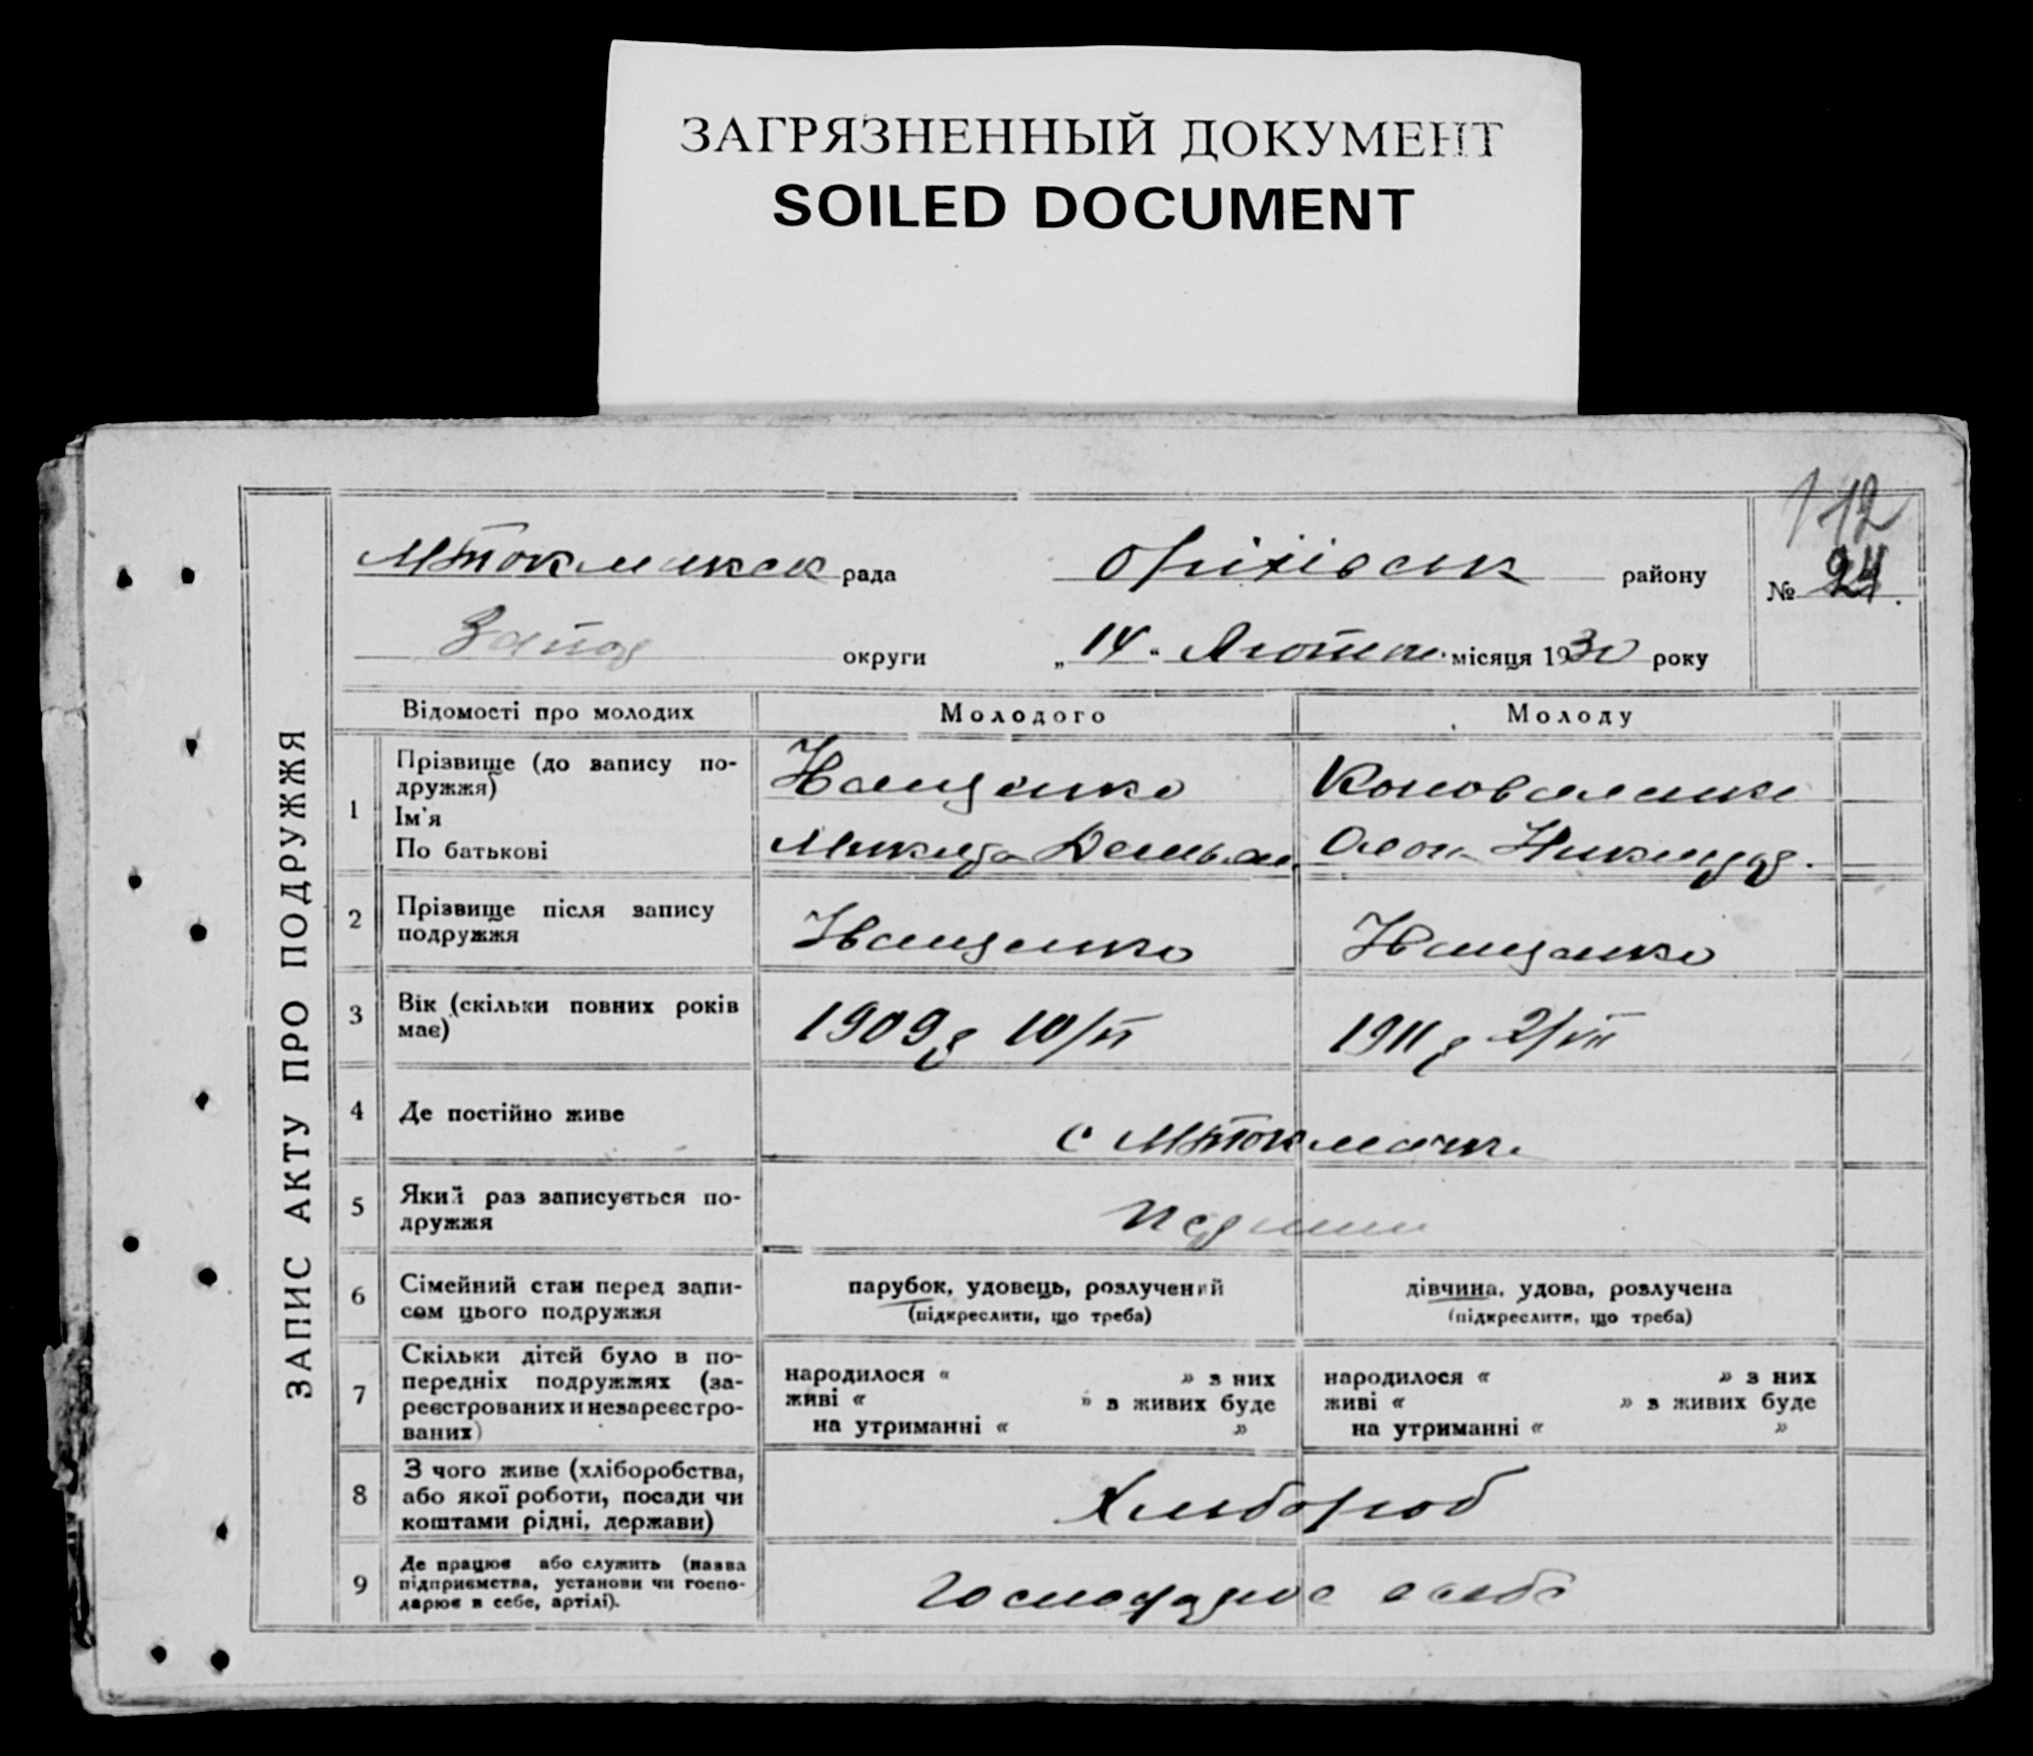 ЗАГРЯЗНЕННЫЙ ДОКУМЕНТ
SOILED DOCUMENT
112
ЗАПИС АКТУ ПРО ПОДРУЖЖЯ
МТокмацьк рада Оріхівськ району № 24.
Запор округи „14“ Лютого місяця 1930 року
Відомості про молодих Молодого Молоду
1 Прізвище (до запису по-
дружжя) Іващенко Коноваленко
Ім'я
По батькові Микита Демьян. Олек. Никифор.
2 Прізвище після запису
подружжя Іващенко Іващенко
3 Вік (скільки повних років
має) 1909 р 10/VI 1911 р 2/VII
4 Де постійно живе с МТокмачк.
5 Який раз записується по-
дружжя Перший
6 Сімейний стан перед запи-
сом цього подружжя
парубок, удовець, розлучений дівчина, удова, розлучена
(підкреслити, що треба) (підкреслити, що треба)
7 Скільки дітей було в по-
передніх подружжях (за-
реєстрованих и незареєстро-
ваних)
народилося « » з них народилося « » з них
живі « » в живих буде живі « » в живих буде
на утриманні « » на утриманні « »
8 З чого живе (хліборобства,
або якої роботи, посади чи
коштами рідні, держави) Хлібороб
9 Де працює або служить (назва
підприємства, установи чи госпо-
дарює в себе, артілі). Господарює в себе